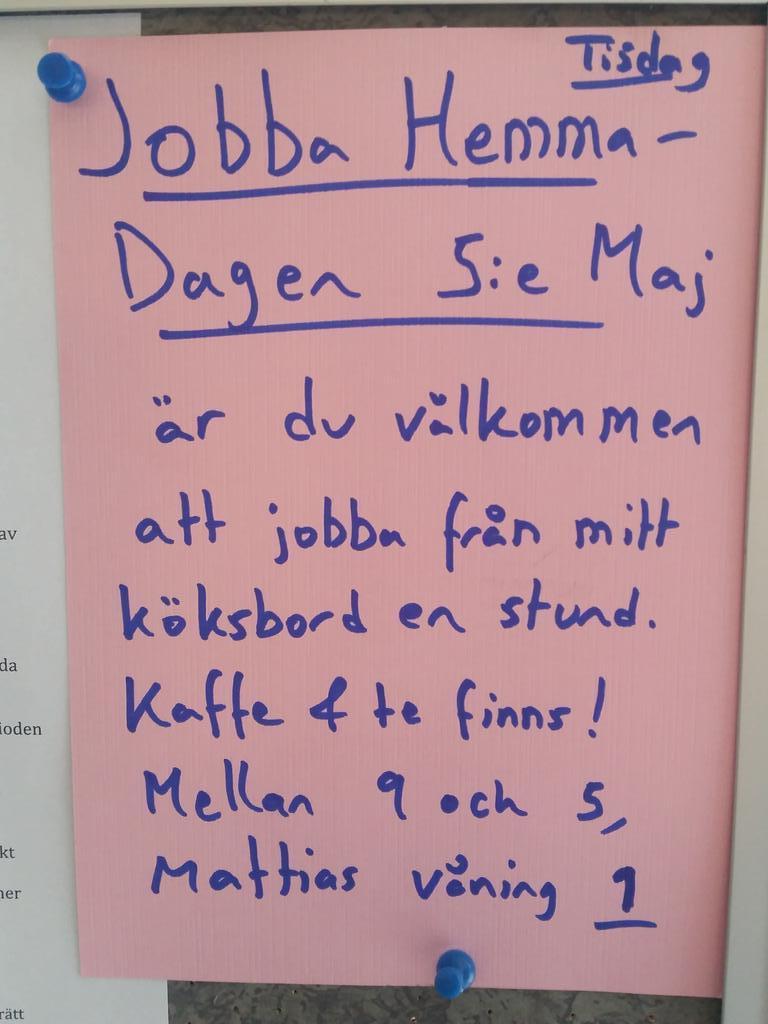 Tisdag
Jobba Hemma-
Dagen 5:e Maj
är du välkommen
att jobba från mitt
köksbord en stund.
Kaffe & te finns!
Mellan 9 och 5,
Mattias våning 1
av
da
ioden
kt
ner
rätt